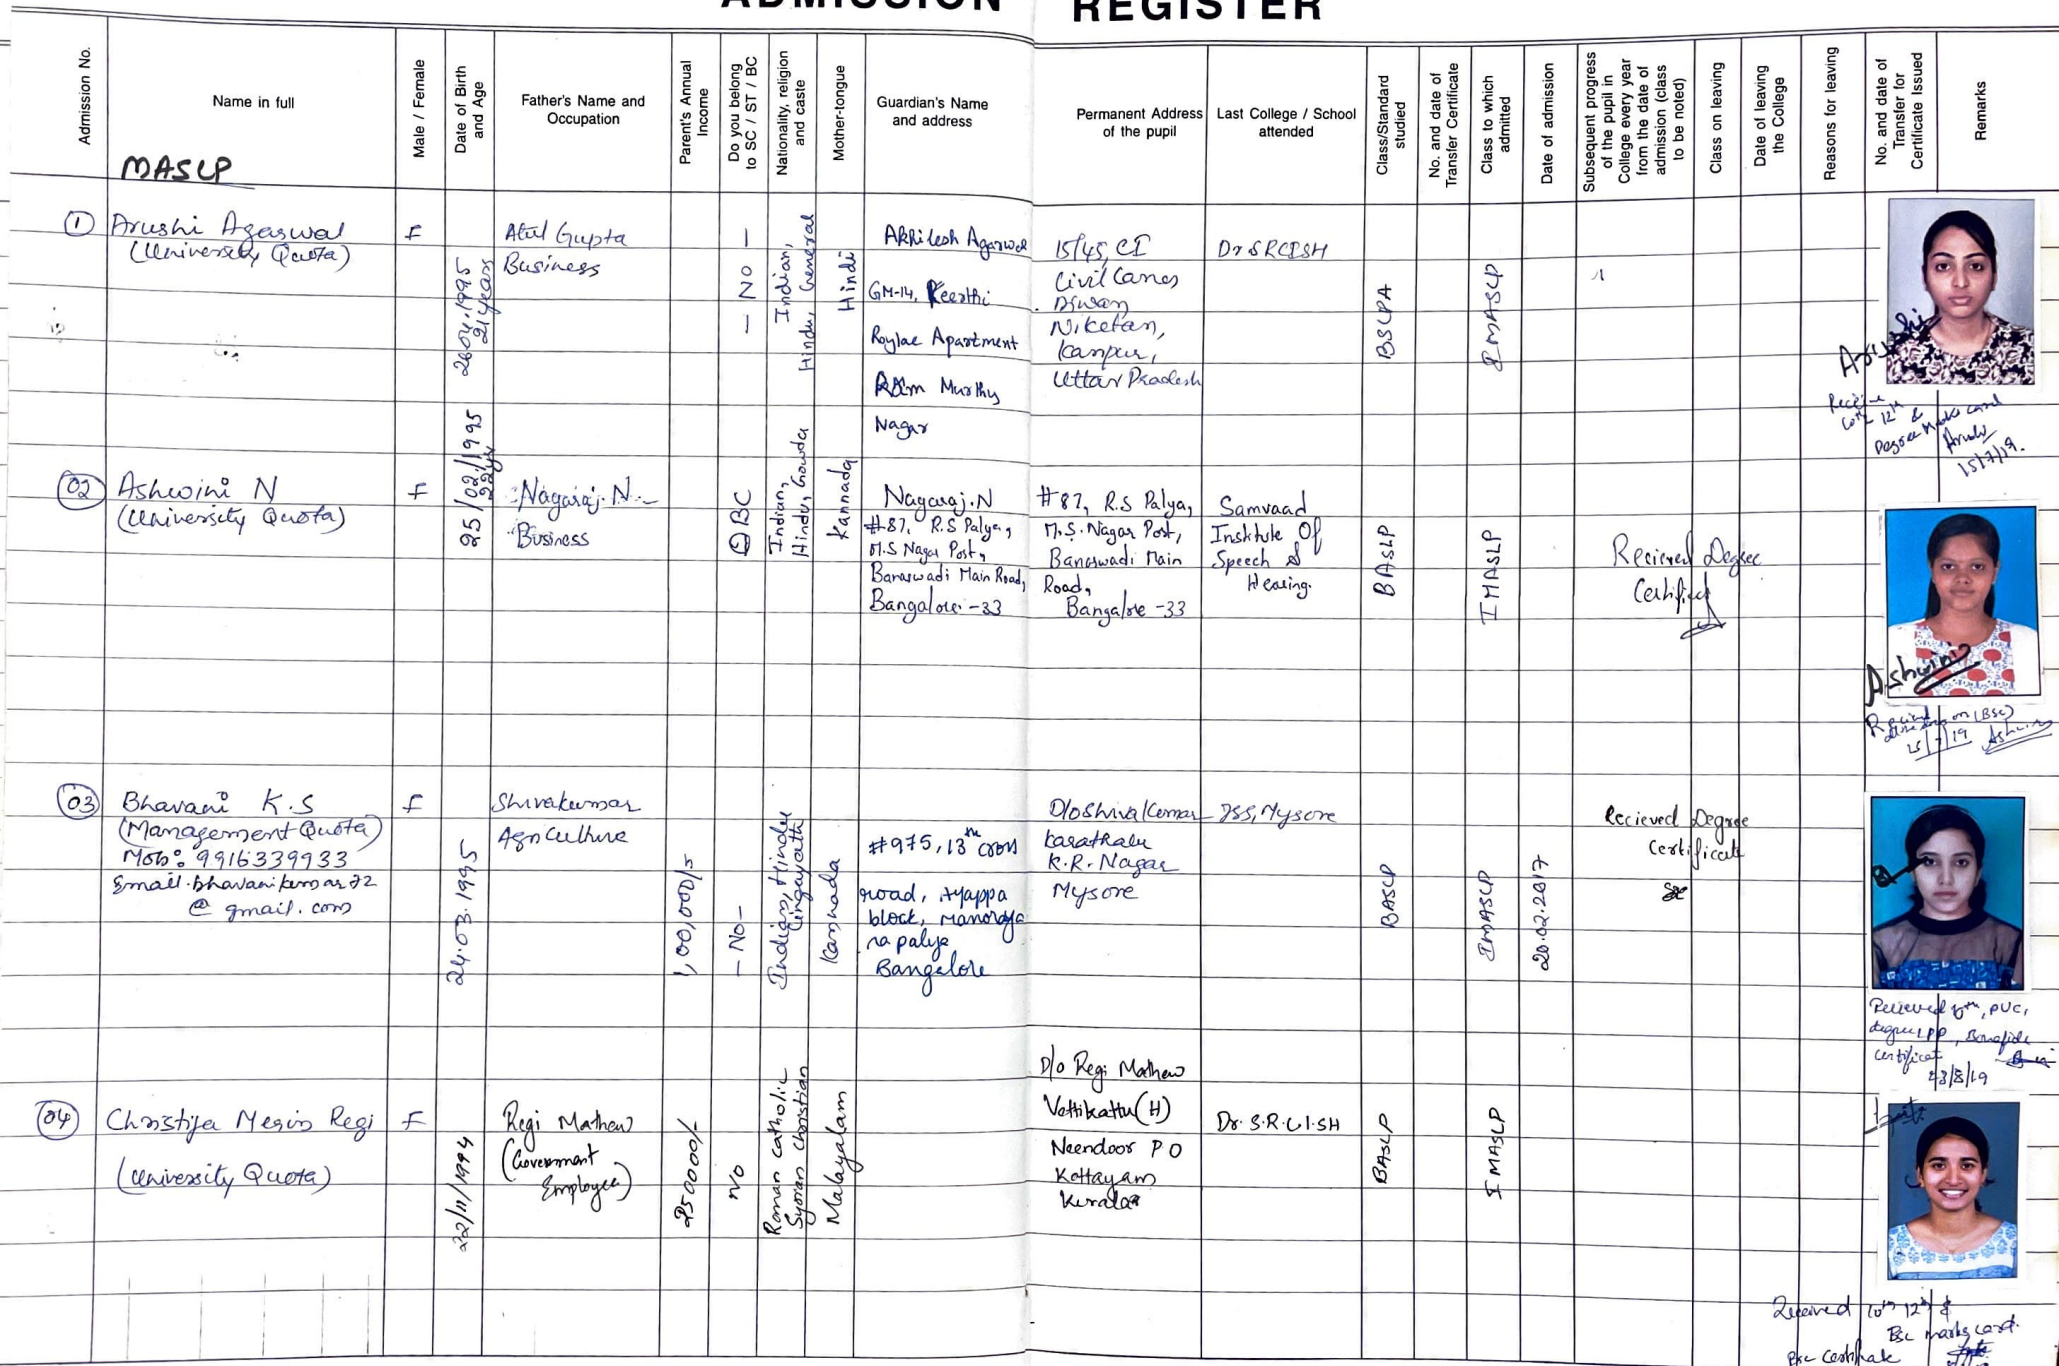 ADMISSION REGISTER
Admission No.
Name in full
Male / Female
Date of Birth
and Age
Father's Name and
Occupation
Parent's Annual
Income
Do you belong
to SC / ST / BC
Nationality, religion
and caste
Mother-tongue
Guardian's Name
and address
Permanent Address
of the pupil
Last College / School
attended
Class/Standard
studied
No. and date of
Transfer Certificate
Class to which
admitted
Date of admission
Subsequent progress
of the pupil in
College every year
from the date of
admission (class
to be noted)
Class on leaving
Date of leaving
the College
Reasons for leaving
No. and date of
Transfer for
Certificate Issued
Remarks
MASLP
1
Arushi Agarwal
(University Quota)
F
21 years
Atul Gupta
Business
- NO -
Indian,
Hindu, General
Hindi
Akhilesh Agarwal
GM-14, Keerthi
Roylae Apartment
Ram Murthy
Nagar
15/45, CI
Civil Lanes
Niketan,
Kanpur,
Uttar Pradesh
Dr SRCISH
BSLPA
MASLP
Arushi
12th &
Degree Marks card
15/7/19.
02
Ashwini N
(University Quota)
F
25/02/1995
Nagaraj. N.
Business
OBC
Indian,
Hindu, Gowda
Kannada
Nagaraj.N
#87, R.S Palya,
M.S Nagar Post,
Banaswadi Main Road,
Bangalore -33
#87, R.S Palya,
M.S. Nagar Post,
Banaswadi Main
Road,
Bangalore -33
Samvaad
Institute Of
Speech &
Hearing.
BASLP
I MASLP
Recieved Degree
Ashwini
(BSc)
Ashwini
03
Bhavani K.S
(Management Quota)
Mob: 9916339933
Email.bhavanikumar72
@ gmail.com
F
24.03.1995
Shivakumar
Agriculture
1,00,000/-
- No -
Indian, Hindu
Lingayath
Kannada
#975, 13th cross
road, Ayappa
block, Manoraya
na palya
Bangalore
D/o Shiva Kumar
Karathalu
K.R. Nagar
Mysore
JSS, Mysore
BASLP
I MASLP
20.02.2017
Recieved Degree
Certificate
Recieved 10th, PUC,
degree, PP, Bonafide
Certificat
23/8/19
04
Christija Merin Regi
(University Quota)
F
22/11/1994
Regi Mathew
(Government
Employee)
250000/-
No
Roman Catholic
Syrian Christian
Malayalam
D/o Regi Mathew
Vettikattu (H)
Neendoor P O
Kottayam
Kerala
Dr. S.R.C.I.SH
BASLP
I MASLP
Received 10th 12th &
Bsc marks card.
Bsc Certificate